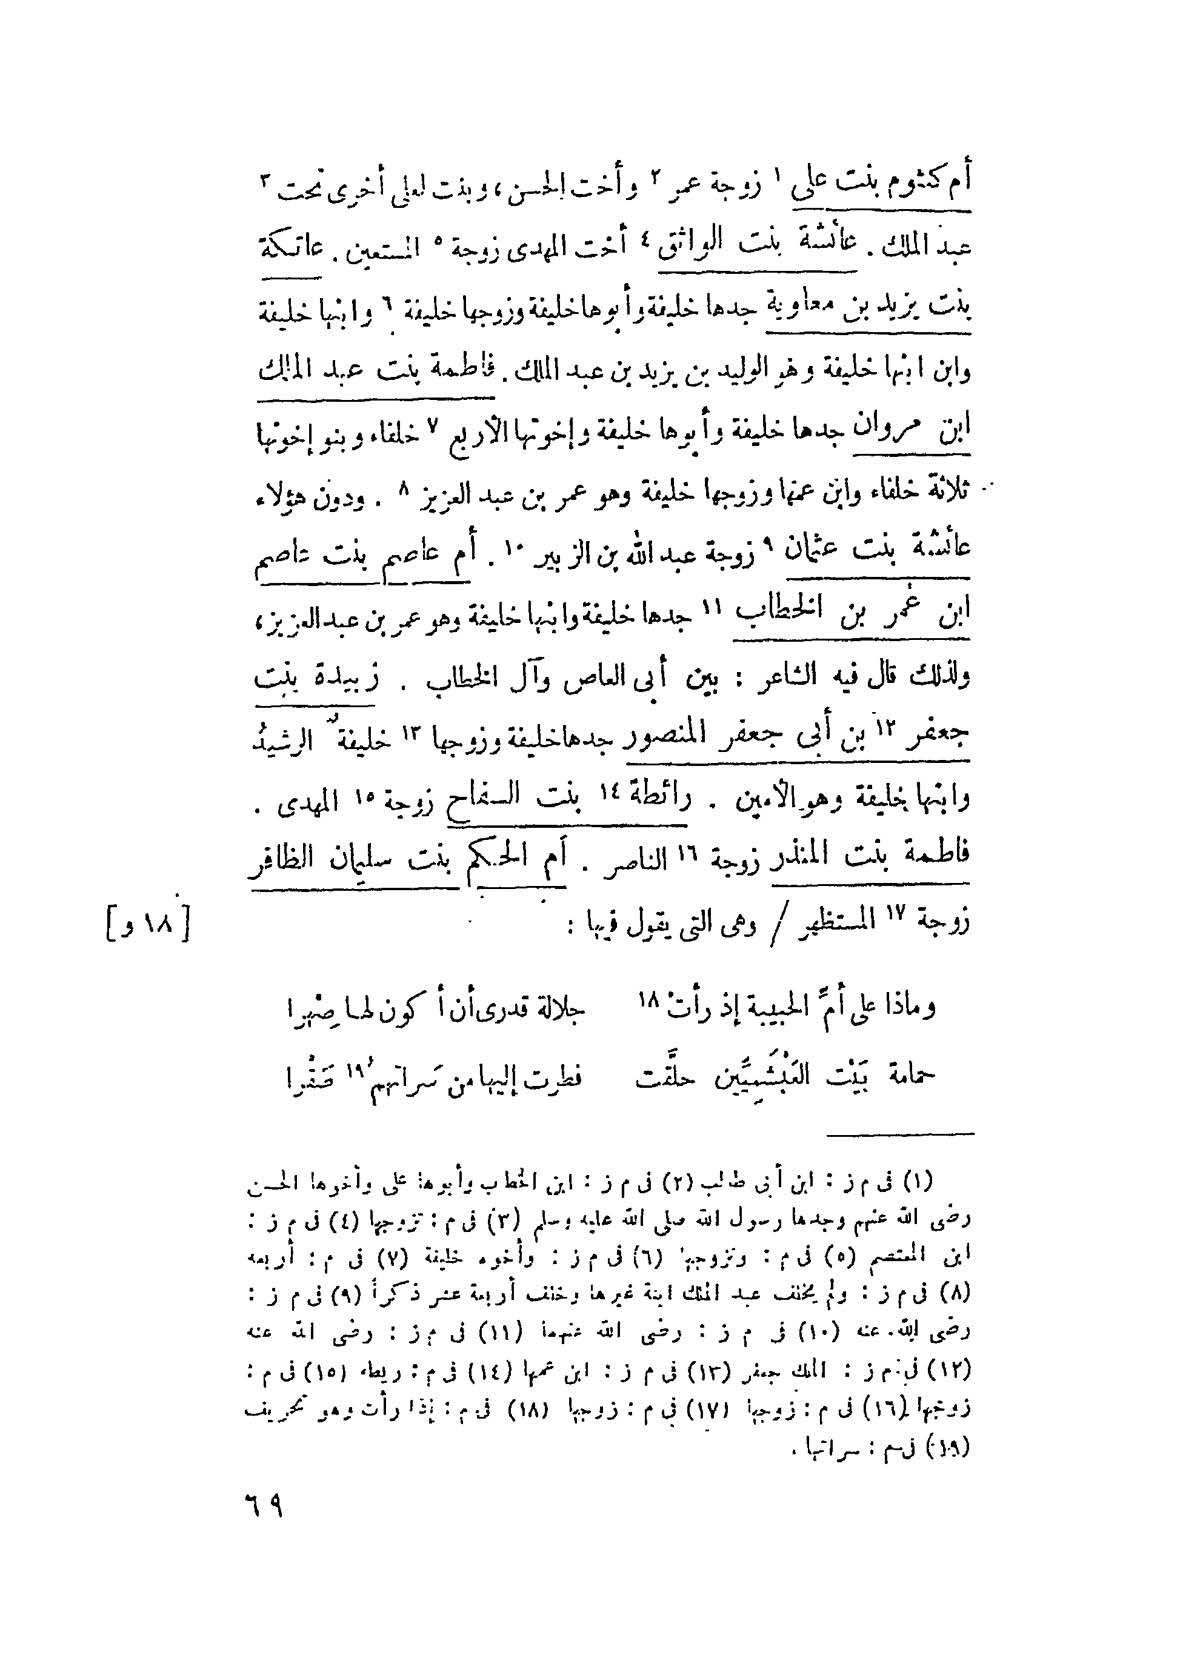 أم كلثوم بنت على ١ زوجة عمر ٢ وأخت الحسن ، وبنت لعلى أخرى تحت ٣
عبد الملك . عائشة بنت الواثق ٤ أخت المهدى زوجة ٥ المستعين . عاتكة
بنت يزيد بن معاوية جدها خليفة وأبوها خليفة وزوجها خليفة ٦ وابنها خليفة
وابن ابنها خليفة وهو الوليد بن يزيد بن عبد الملك . فاطمة بنت عبد الملك
ابن مروان جدها خليفة وأبوها خليفة وإخوتها الأربع ٧ خلفاء وبنو إخوتها
ثلاثة خلفاء وابن عمها وزوجها خليفة وهو عمر بن عبد العزيز ٨ . ودون هؤلاء
عائشة بنت عثمان ٩ زوجة عبد الله بن الزبير ١٠ . أم عاصم بنت عاصم
ابن عُمر بن الخطاب ١١ جدها خليفة وابنها خليفة وهو عمر بن عبد العزيز ،
ولذلك قال فيه الشاعر : بين أبى العاص وآل الخطاب . زبيدة بنت
جعفر ١٢ بن أبى جعفر المنصور جدها خليفة وزوجها ١٣ خليفة الرشيدُ
وابنها خليفة وهو الأمين . رائطة ١٤ بنت السفاح زوجة ١٥ المهدى .
فاطمة بنت المنذر زوجة ١٦ الناصر . أم الحكم بنت سليمان الظافر
زوجة ١٧ المستظهر / وهى التى يقول فيها :
[ ١٨ و ]
وماذا على أمِّ الحبيبة إذ رأتْ ١٨ جلالة قدرى أن أكون لها صِهْرا
حمامة بَيْت العَبْشَمِيِّين حلَّقت فطرت إليها من سَراتهمُ ١٩ صَقْرا
(١) فى م ز : ابن أبى طالب (٢) فى م ز : ابن الخطاب وأبوها على وأخوها الحسن
رضى الله عنهم وجدها رسول الله صلى الله عليه وسلم (٣) فى م : تزوجها (٤) فى م ز :
ابن المعتصم (٥) فى م : وتزوجها (٦) فى م ز : وأخوه خليفة (٧) فى م : أربعة
(٨) فى م ز : ولم يخلف عبد الملك ابنة غيرها وخلف أربعة عشر ذكراً (٩) فى م ز :
رضى الله عنه (١٠) فى م ز : رضى الله عنهما (١١) فى م ز : رضى الله عنه
(١٢) فى م ز : الملك جعفر (١٣) فى م ز : ابن عمها (١٤) فى م : ريطة (١٥) فى م :
زوجها (١٦) فى م : زوجها (١٧) فى م : زوجها (١٨) فى م : إذا رأت وهو تحريف
(١٩) فى م : سراتها .
٦٩